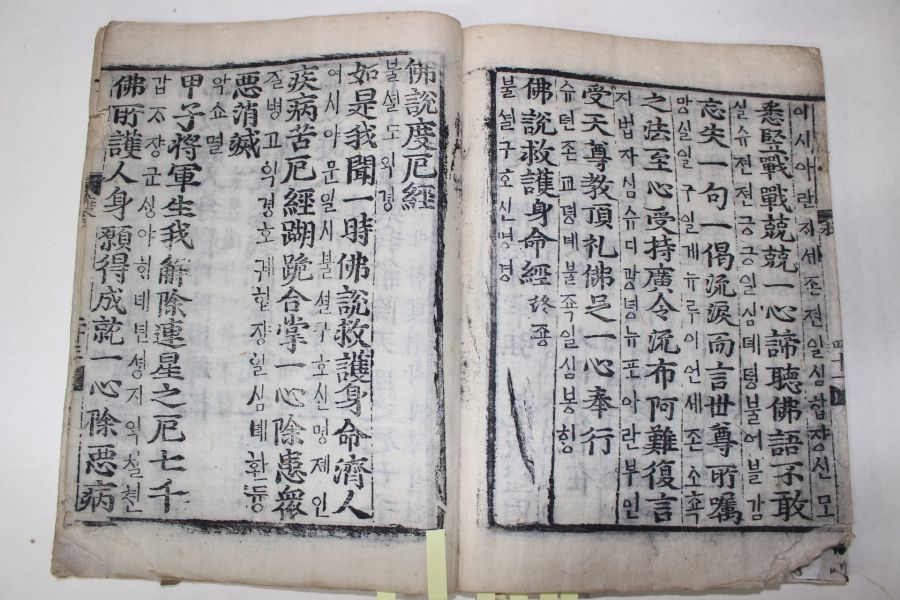 이시아란재셰존젼일심합쟝신모
悉竪戰戰兢兢一心諦聽佛語不敢
실슈젼젼긍긍일심뎨텽불어블감
忘失一句一偈流淚而言世尊所囑
망실일구일게뉴루이언셰존소쵹
之法至心受持廣令流布阿難復言
지법지심슈디광녕뉴포아란부언
受天尊教頂礼佛足一心奉行
슈텬존교뎡녜불죡일심봉힝
佛說救護身命經 終 죵
불셜구호신명경
佛說度厄經
불셜도익경
如是我聞一時佛說救護身命濟人
여시아문일시불셜구호신명졔인
疾病苦厄經踋跪合掌一心除患衆
질병고익경호궤합쟝일심뎨환듕
悪消滅
악쇼멸
甲子將軍生我觧除連星之厄七千
갑자쟝군싱아뎨년셩지익칠쳔
佛所護人身願得成就一心除悪病